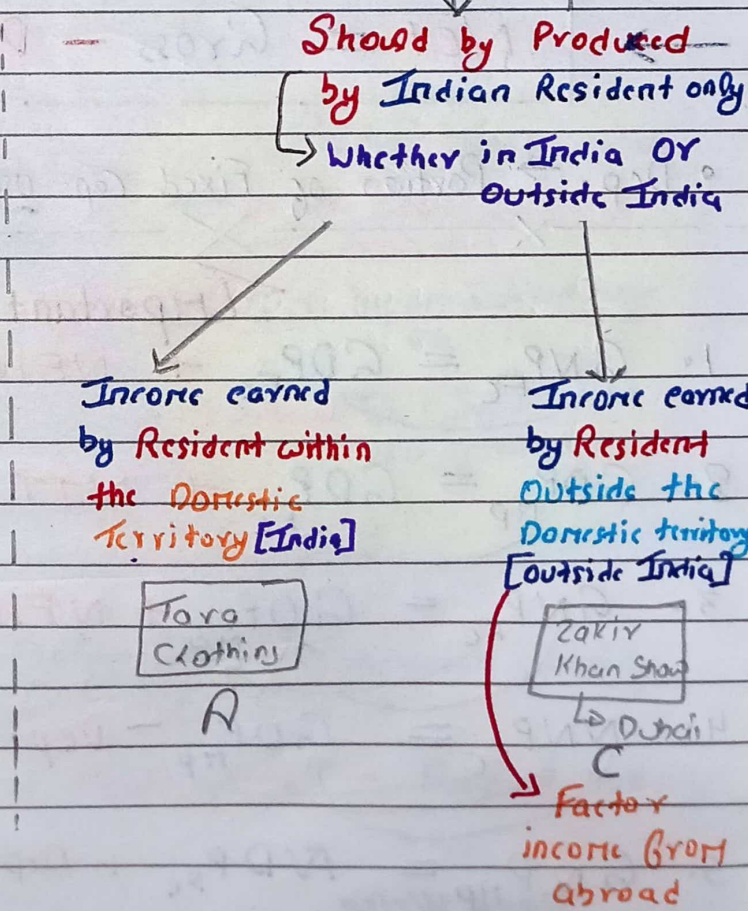 Should by Produced
by Indian Resident only
→ Whether in India Or
Outside India
Income earned
by Resident within
the Domestic
Territory [India]
Tara
Clothing
A
Income earned
by Resident
Outside the
Domestic territory
[outside India]
Zakir
Khan Show
↳ Dubai
C
Factor
income from
abroad